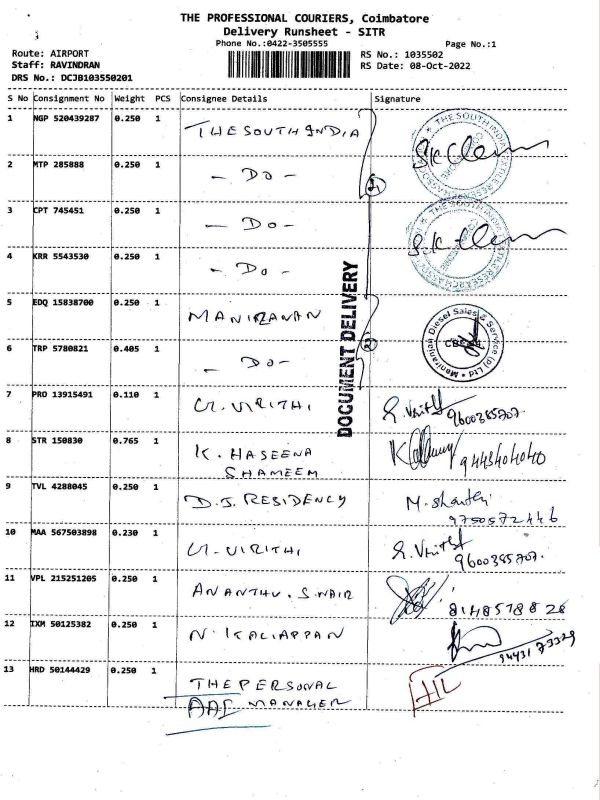 THE PROFESSIONAL COURIERS, Coimbatore
Delivery Runsheet - SITR
Phone No.:0422-3505555 Page No.:1
Route: AIRPORT RS No.: 1035502
Staff: RAVINDRAN RS Date: 08-Oct-2022
DRS No.: DCJB103550201
S No Consignment No Weight PCS Consignee Details Signature
1 NGP 520439287 0.250 1 THE SOUTH INDIA
2 MTP 285888 0.250 1 - Do -
3 CPT 745451 0.250 1 - Do -
4 KRR 5543530 0.250 1 - Do -
DOCUMENT DELIVERY
5 EDQ 15838700 0.250 1
6 TRP 5780821 0.405 1 - Do -
7 PRO 13915491 0.110 1 VIRITHI 9600385707.
8 STR 150830 0.765 1 K. HASEENA SHAMEEM 9443404040
9 TVL 4288045 0.250 1 D.J. RESIDENCY M. Shanthi
9750572446
10 MAA 567503898 0.230 1 VIRITHI 9600385707.
11 VPL 215251205 0.250 1 ANANTHU. S. NAIR 8148578828
12 IXM 50125382 0.250 1 N. KALIAPPAN 9443173329
13 HRD 50144429 0.250 1 THE PERSONAL
AAI MANAGER